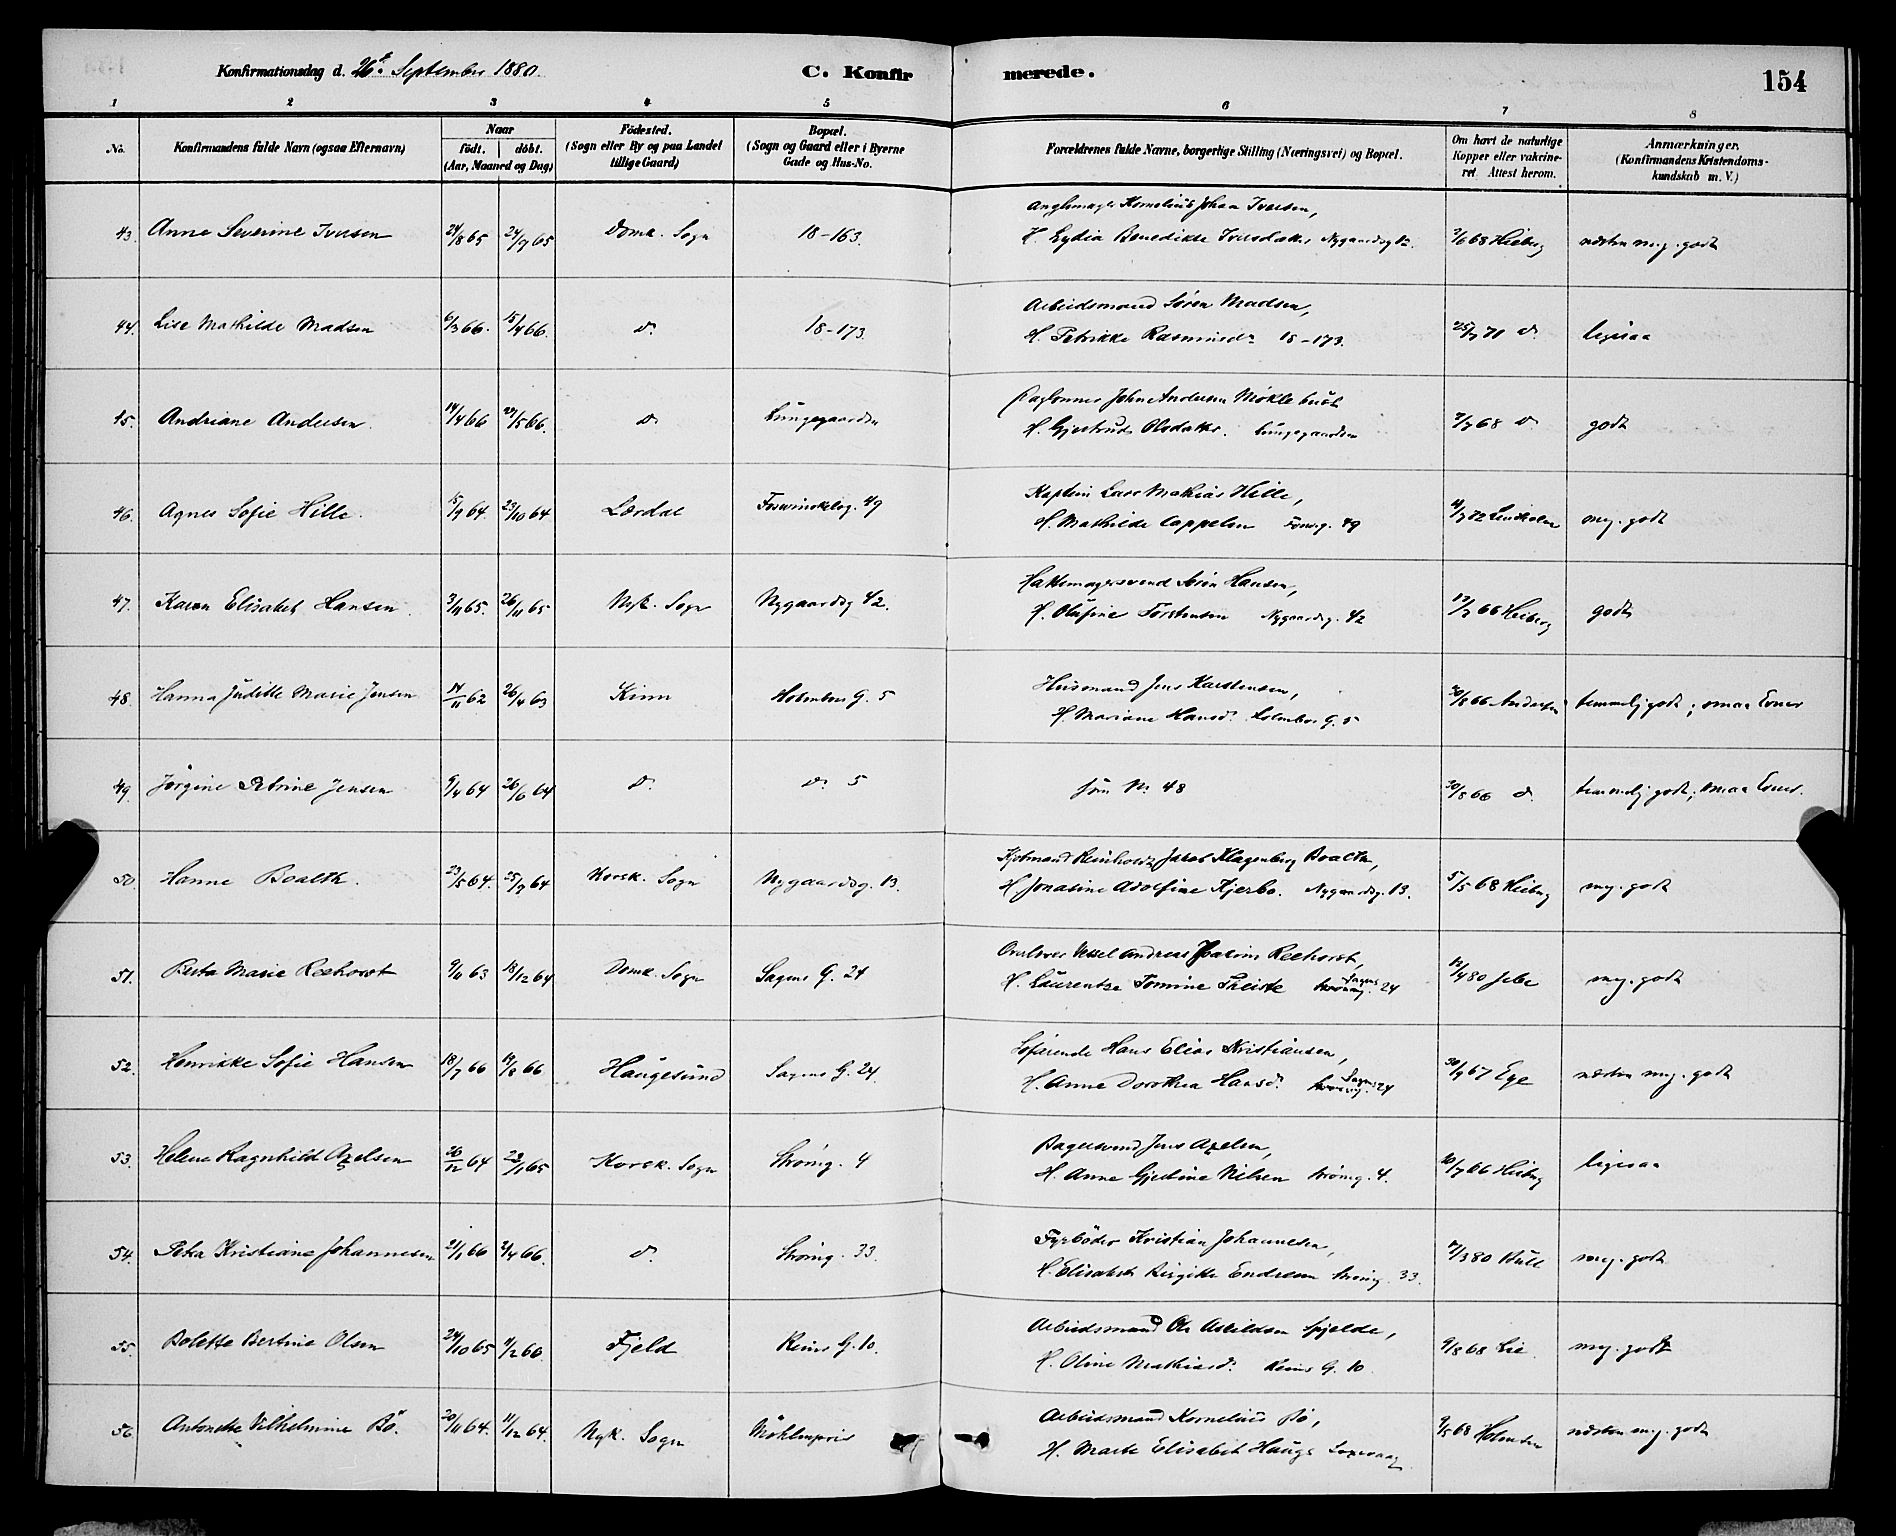 Konfirmationsdag d. 26de September 1880.
C. Konfirmerede.
154
1 2 3 4 5 6 7 8
No. Konfirmandens fulde Navn (ogsaa Efternavn) Naar født. døbt. (Aar, Maaned og Dag) Födested. (Sogn eller By og paa Landet tillige Gaard) Bopæl. (Sogn og Gaard eller i Byerne Gade og Hus-No. Forældrenes fulde Navne, borgerlige Stilling (Næringsvei) og Bopæl. Om havt de naturlige Kopper eller vakcineret. Attest herom. Anmærkninger. (Konfirmandens Kristendomskundskab m. V.)
43. Anne Severine Iversen 24/8 65 24/9 65 Domk. Sogn 18-163. Kornelius Johan Iversen, H. Lydia Benedikte Iversdatter Nygaardsg 12. 2/6 68 Heiberg næsten meg. godt
44. Lise Mathilde Madsen 6/3 66. 15/4 66. do 18-173. Arbeidsmand Søren Madsen, H. Petrikke Rasmusdr 18-173. 25/7 71 do ligesaa
45. Andriane Andersen. 14/4 66 27/5 66. do Lungegaarden Daglønner Johan Andersen Møklebust H. Gjertrud Olsdatter. Lungegaarden 2/7 68 do godt
46. Agnes Sofie Hille. 15/9 64. 23/10 64 Lærdal Foswinckelsg. 49 Kaptein Lars Mathias Hille, H. Mathilde Cappelen Fosw.g. 49 4/7 72 Lindholm meg. godt
47. Karen Elisabet Hansen 3/11 65. 26/11 65 Nyk. Sogn Nygaardsg 42. Hattemagersvend Søren Hansen, H. Olufine Torstensen Nygaardsg. 42 17/7 66 Heiberg godt
48. Hanna Judithe Marie Jensen 14/11 62 26/4 63 Kinn Holmbos G. 5 Husmand Jens Karstensen, H. Mariane Hansdr Holmbos G. 5 30/8 66 Andersen temmelig godt; smaa Evner
49. Jørgine Petrine Jensen 9/4 64 26/6 64 do do 5 som No 48 30/8 66 do temmelig godt; smaa Evner.
50. Hanne Boalth. 23/5 64. 25/7 64 Korsk. Sogn Nygaardsg. 13. Kjøbmand Reinholdt Jakob Klagenberg Boalth, H. Jonasine Adolfine Kjerbo. Nygaardsg. 13. 5/5 68 Heiberg meg. godt
51. Berta Marie Reehorst 9/11 63 18/12 64 Domk. Sogn Sagens G. 24 Vessel Andreas Joakim Reehorst, H. Laurentze Tomine Theiste Sagens 24 12/4 80 Jebe meg. godt
52. Henrikke Sofie Hansen 18/7 66 19/8 66 Haugesund Sagens G. 24. Søfarende Hans Elias Kristiansen, H. Anne Dorothea Hansdr. Sagens 24 30/9 67 Ege næsten meg. godt
53. Helene Ragnhild Axelsen 26/12 64 22/1 65 Korsk. Sogn Strømg. 4 Bagersvend Jens Axelsen, H. Anne Gjertine Nilsen Strømg. 4. 10/7 66 Heiberg ligesaa
54. Petra Kristiane Johannesen 21/1 66 2/4 66. do Strømg. 33. Fyrbøder Kristian Johannesen, H. Elisabet Birgitte Endresen Strømg. 33. 17/3 80 Bull meg. godt
55. Bolette Bertine Olsen 24/10 65 11/2 66. Fjeld Reins G. 10. Arbeidsmand Ole Askildsen Spjelde, H. Oline Mathiasdr. Reins G. 10 9/8 68 Lie meg. godt
56. Antonette Vilhelmine Bø. 20/11 64. 11/12 64. Nyk. Sogn Møhlenpris Arbeidsmand Kornelius Bø, H. Marte Elisabet Hauge Laxevaag 9/5 68 Holmsen næsten meg. godt